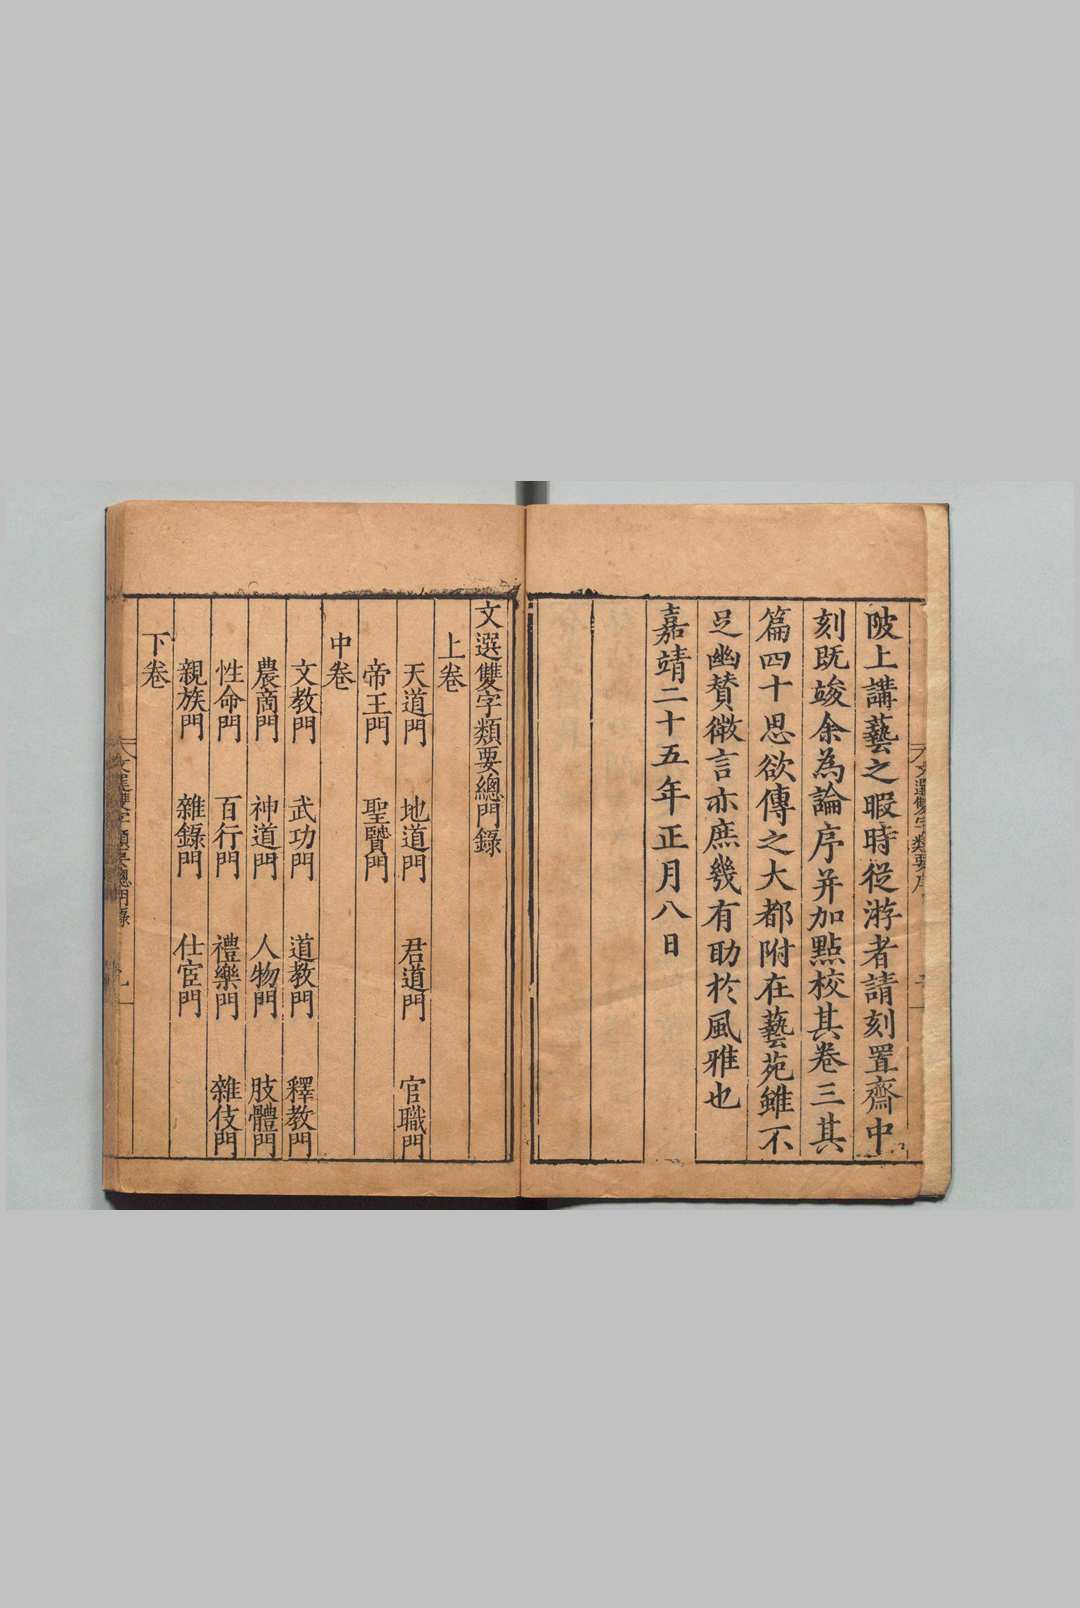 陂上講藝之暇時從游者請刻置齋中
刻既竣余為論序并加點校其卷三其
篇四十思欲傳之大都附在藝苑雖不
足幽贊微言亦庶幾有助於風雅也
嘉靖二十五年正月八日
文選雙字類要序
文選雙字類要總門錄
上卷
天道門 地道門 君道門 官職門
帝王門 聖賢門
中卷
文教門 武功門 道教門 釋教門
農商門 神道門 人物門 肢體門
性命門 百行門 禮樂門 雜伎門
親族門 雜錄門 仕宦門
下卷
文選雙字類要總門錄